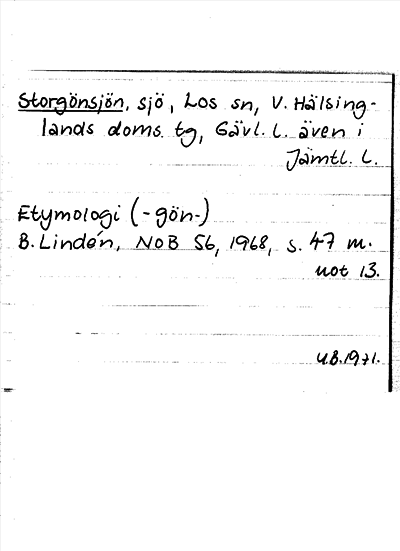 Storgönsjön, sjö, Los sn, V. Hälsing-
lands doms. tg, Gävl. L. även i
Jämtl. L.
Etymologi (-gön-)
B. Lindén, NoB 56, 1968, s. 47 m.
not 13.
UB.1971.